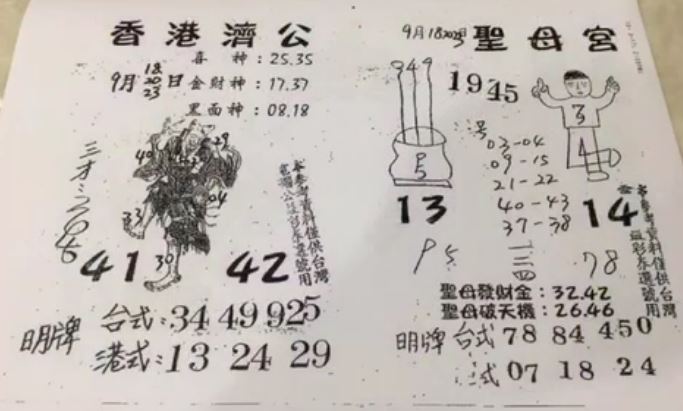 香港濟公
喜神:25.35
9月18 20 23日
金財神:17.37
黑面神:08.18
40
29
04
33
39
41
42
本參考資料僅供台灣
明牌
台式:34 49 925
港式:13 24 29
9月18 20 23
聖母宮
949
19 45
3
號
03-04
09-15
21-22
40-43
37-38
P
5
13
14
4
本參考資料僅供台灣
公益彩券選號用
P 5
一三四
78
聖母發財金:32.42
聖母破天機:26.46
明牌
台式 78 84 450
式 07 18 24